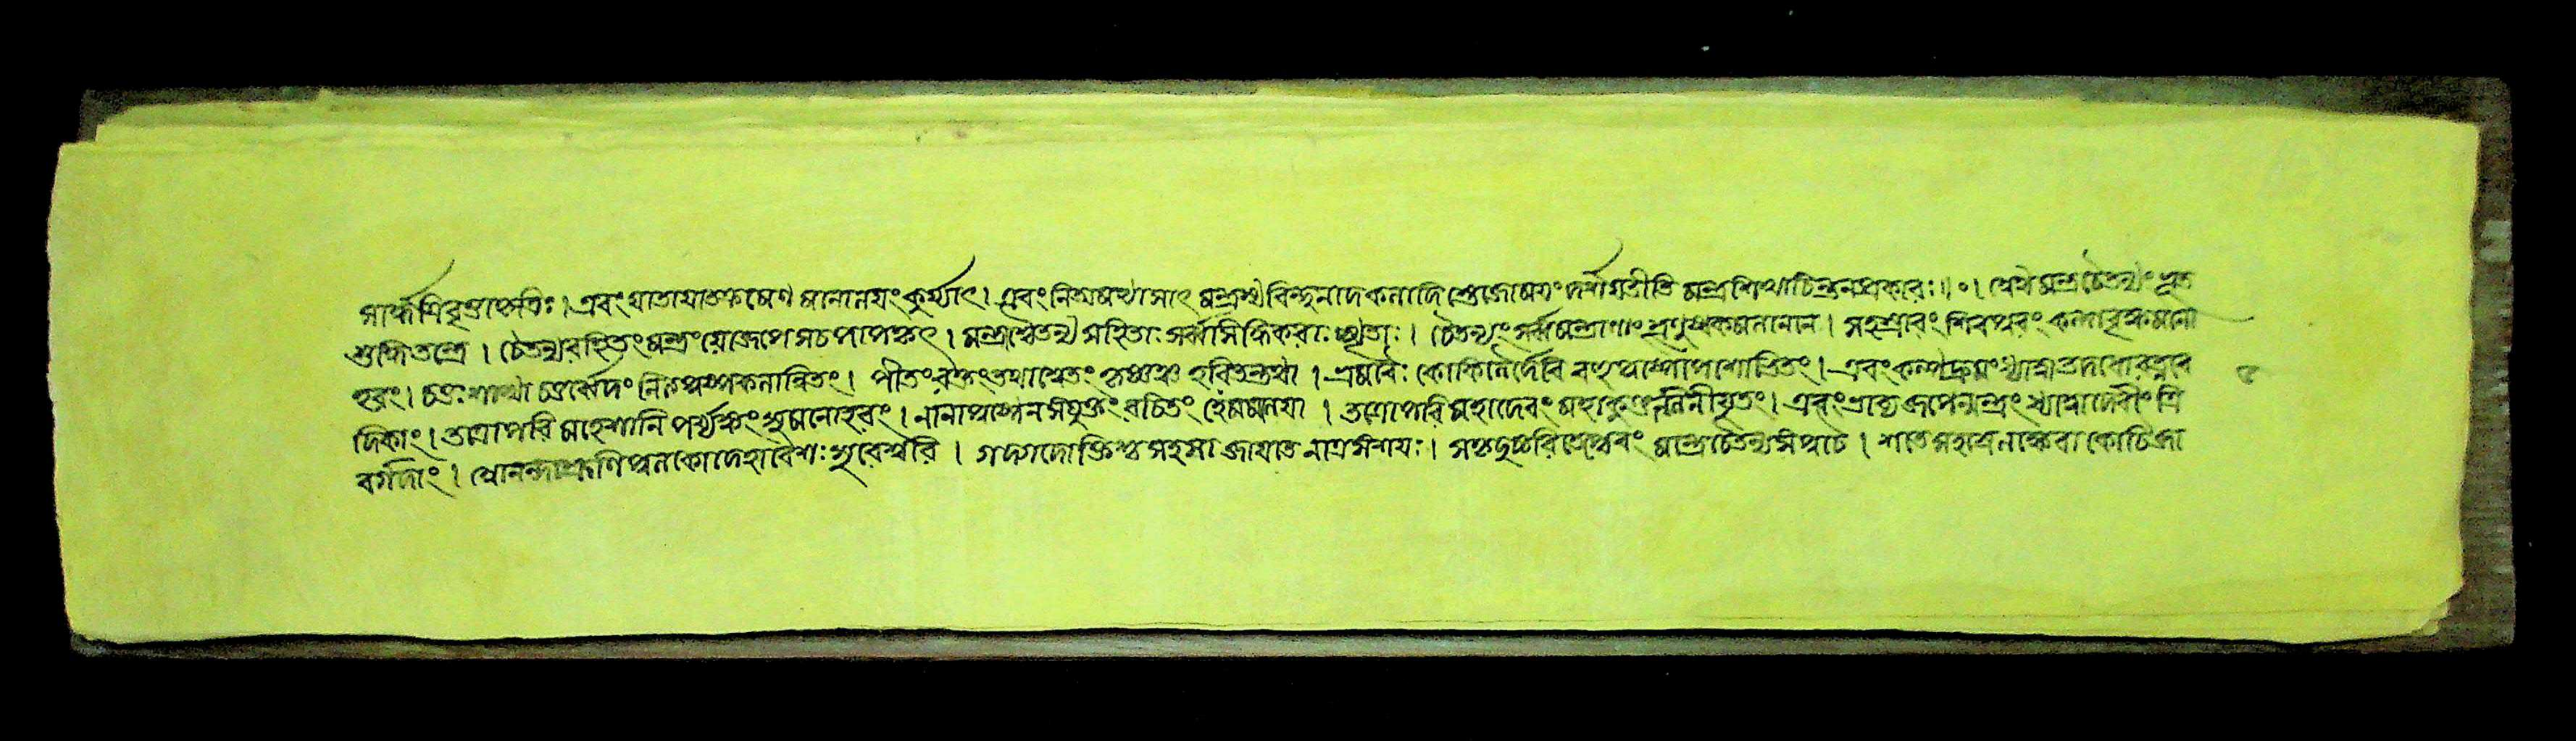 সার্দ্ধত্রিবৃত্তাকৃতিঃ। এবং যাতায়াতক্রমেণ মনোলয়ং কুর্য্যাৎ। এবং নিত্যমভ্যাসাৎ মন্ত্রস্থ বিন্দুনাদকলাদি তেজোময়ং পশ্যতীতি মন্ত্রশিখাচিন্তনপ্রকারঃ॥০। অথ মন্ত্রচৈতন্যং ভূত
শুদ্ধিতন্ত্রে। চৈতন্যরহিতং মন্ত্রং যো জপেৎ স চ পাপকৃৎ। মন্ত্রাশ্চৈতন্যসহিতাঃ সর্ব্বসিদ্ধিকরাঃ স্মৃতাঃ। চৈতন্যং সর্ব্বমন্ত্রাণাং শৃণুষ্ব কমলাননে। সহস্রারং শিবপুরং কল্পবৃক্ষমনো
হরং। চতুঃশাখা চতুর্ব্বেদং নিত্যপুষ্পফলান্বিতং। পীতং রক্তং তথা শ্বেতং কৃষ্ণঞ্চ হরিতন্তথা। ভ্রমরৈঃ কোকিলৈর্দেবি বহুপুষ্পোপশোভিতং। এবং কল্পদ্রুমং ধ্যাত্বা তদধো রত্নবে
দিকাং। তত্রোপরি মহেশানি পর্য্যঙ্কং সুমনোহরং। নানাপুষ্পেন সংযুক্তং রচিতং হেমমালয়া। তত্রোপরি মহাদেবং মহাকুণ্ডলিনীযুতং। এবং ভাব্য জপেন্মন্ত্রং ধ্যাত্বা দেবীং ত্রি
বর্গদাং। আনন্দাশ্রূণি পুলকো দেহাবেশঃ সুরেশ্বরি। গদ্গদোক্তিশ্চ সহসা জায়তে নাত্র সংশয়ঃ। সকৃদুচ্চরিতেপ্যেবং মন্ত্রে চৈতন্যসংযুতে। শতে সহস্রে লক্ষে বা কোটিজা